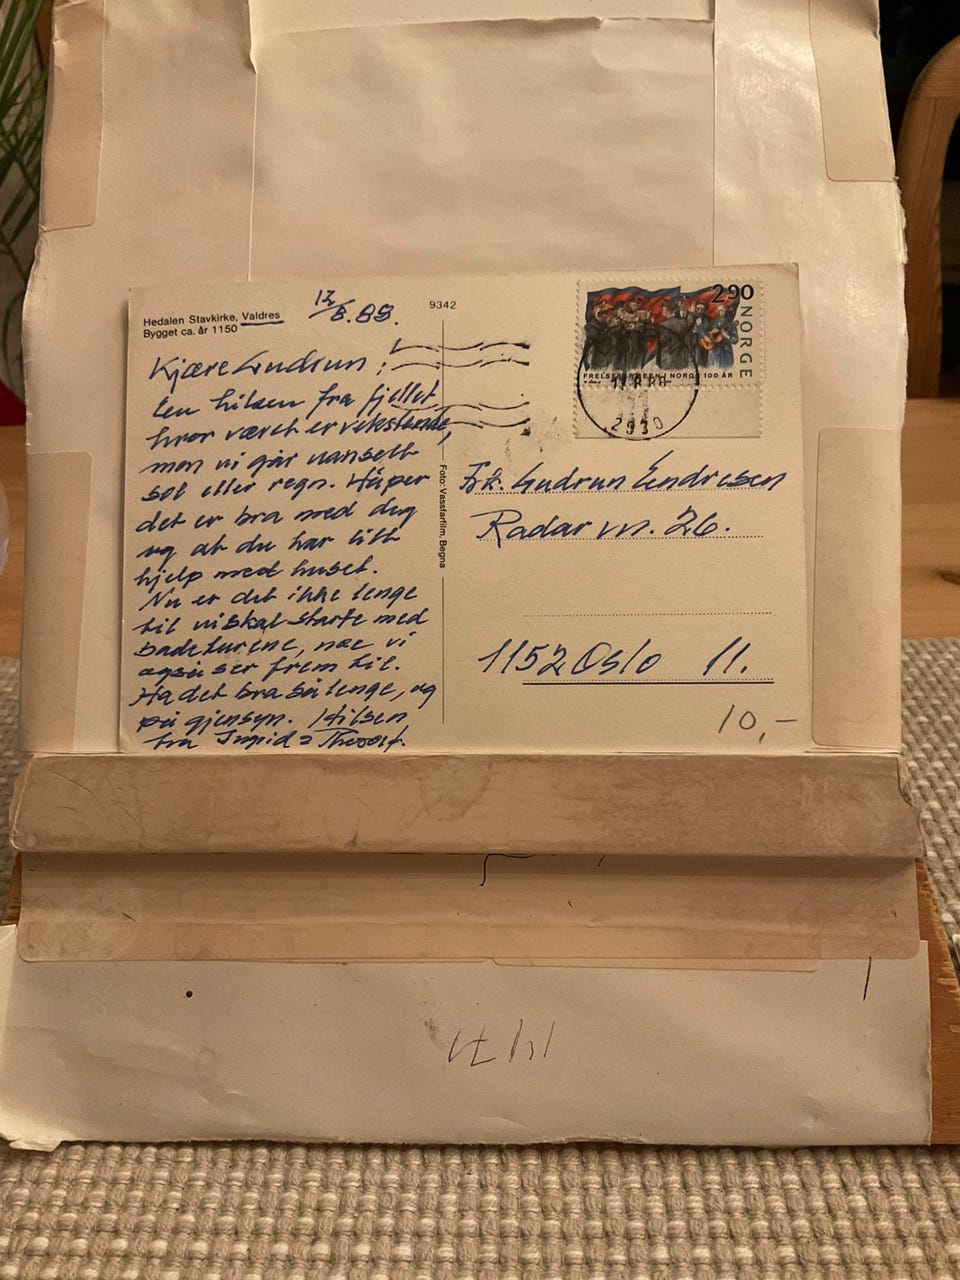 Hedalen Stavkirke, Valdres
Bygget ca. år 1150
12/8.88.
9342
Kjære Gudrun:
En hilsen fra fjellet,
hvor været er vekslende,
men vi går uansett
sol eller regn. Håper
det er bra med deg
og at du har litt
hjelp med huset.
Nu er det ikke lenge
til vi skal starte med
badeturene, noe vi
også ser frem til.
Ha det bra så lenge, og
på gjensyn. Hilsen
fra Ingrid
Foto: Vassfarfilm, Begna
2.90
NORGE
FRELSESARMEEN I NORGE 100 ÅR
2930
Frk. Gudrun Endresen
Radar vn. 26.
1152 Oslo 11.
10,-